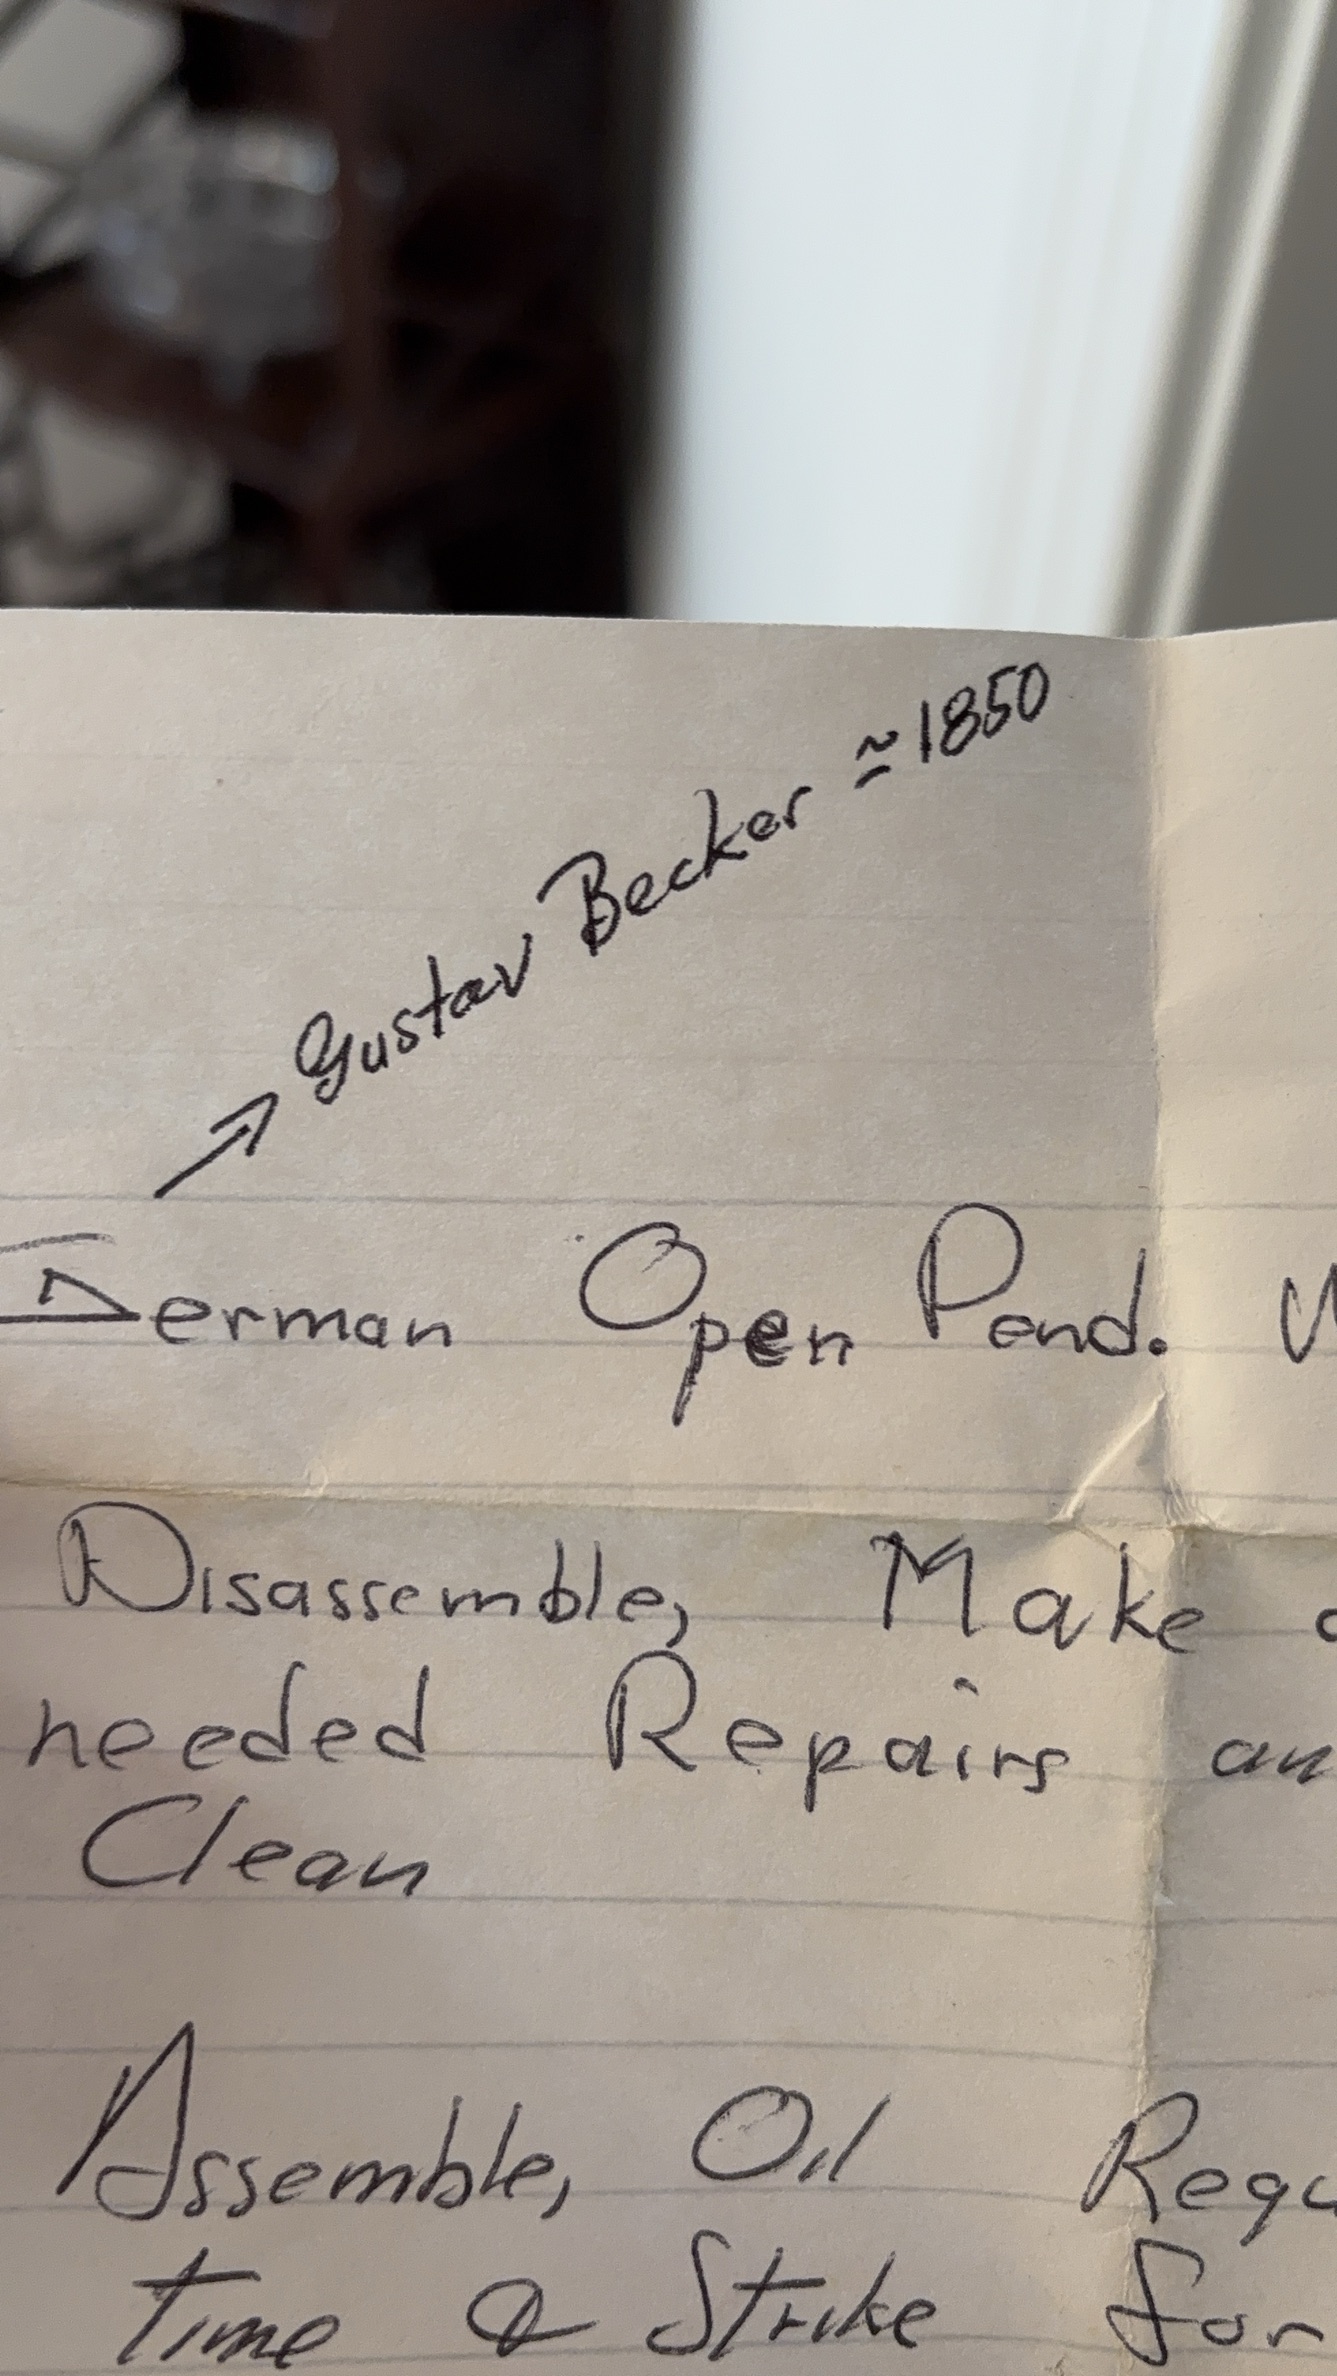 → Gustav Becker ≃ 1850
German Open Pend. W
Disassemble, Make a
needed Repairs an
Clean
Assemble, Oil Regu
time & Strike for